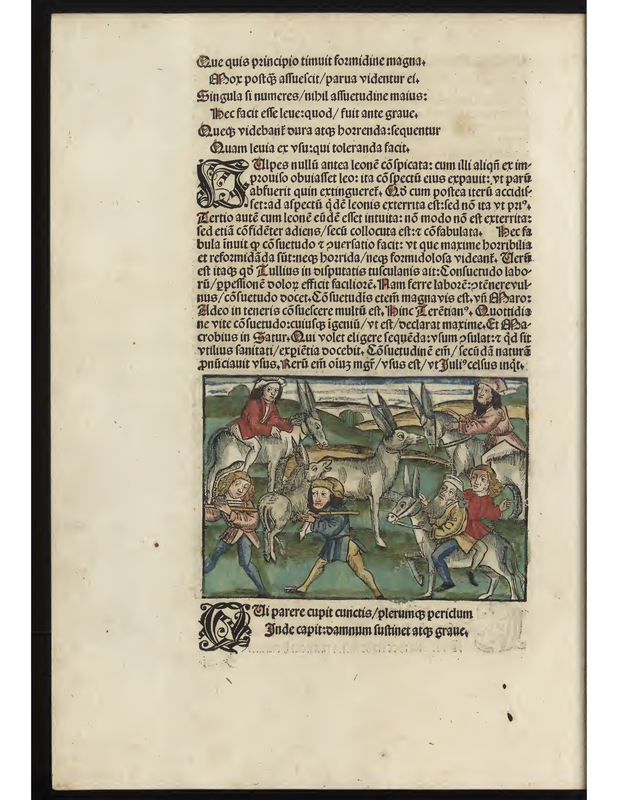 Que quis principio timuit formidine magna.
Mox postq̃ assuescit/parua videntur ei.
Singula si numeres/nihil assuetudine maius:
Hec facit esse leue:quod/ fuit ante graue.
Queq; videbant̃ dura atq; horrenda:sequentur
Quam leuia ex vsu:qui toleranda facit.
Vulpes nullũ antea leonẽ cõspicata: cum illi aliqñ ex im-
prouiso obuiasset leo: ita cõspectũ eius expauit: vt parũ
abfuerit quin extingueret̃. Nõ cum postea iterũ accidis-
set:ad aspectũ q̃dẽ leonis exterrita est:sed nõ ita vt priꝰ.
Tertio autẽ cum leonẽ eũdẽ esset intuita: nõ modo nõ est exterrita:
sed etiã cõfidẽter adiens/secũ collocuta est:⁊ cõfabulata. Hec fa
bula inuit ꝙ cõsuetudo ⁊ ꝯuersatio facit: vt que maxime horribilia
et reformidãda sũt:neq; horrida/neq; formidolosa videant̃. Verũ
est itaq; qõ Tullius in disputatis tusculanis ait:Consuetudo labo-
rũ/ꝑpessionẽ doloꝝ efficit faciliorẽ. Nam ferre laborẽ:ꝯtẽnere vul-
nus/cõsuetudo docet. Cõsuetudis etem̃ magna vis est. vñ Maro:
Adeo in teneris cõsuescere multũ est. Hinc Terẽtianꝰ. Quottidia
ne vite cõsuetudo:cuiusq; igeniũ/vt est/declarat maxime. Et Ma-
crobius in Satur. Qui volet eligere sequẽda:vsum ꝯsulat:⁊ qd sit
vtilius sanitati/expiẽtia docebit. Cõsuetudinẽ em̃/secũdã naturã
ꝓnũciauit vsus. Rerũ em̃ oiuꝫ mgr̃/vsus est/vt Juliꝰ celsus inq̃t.
Qui parere cupit cunctis/plerumq; periclum
Inde capit:damnum sustinet atq; graue.